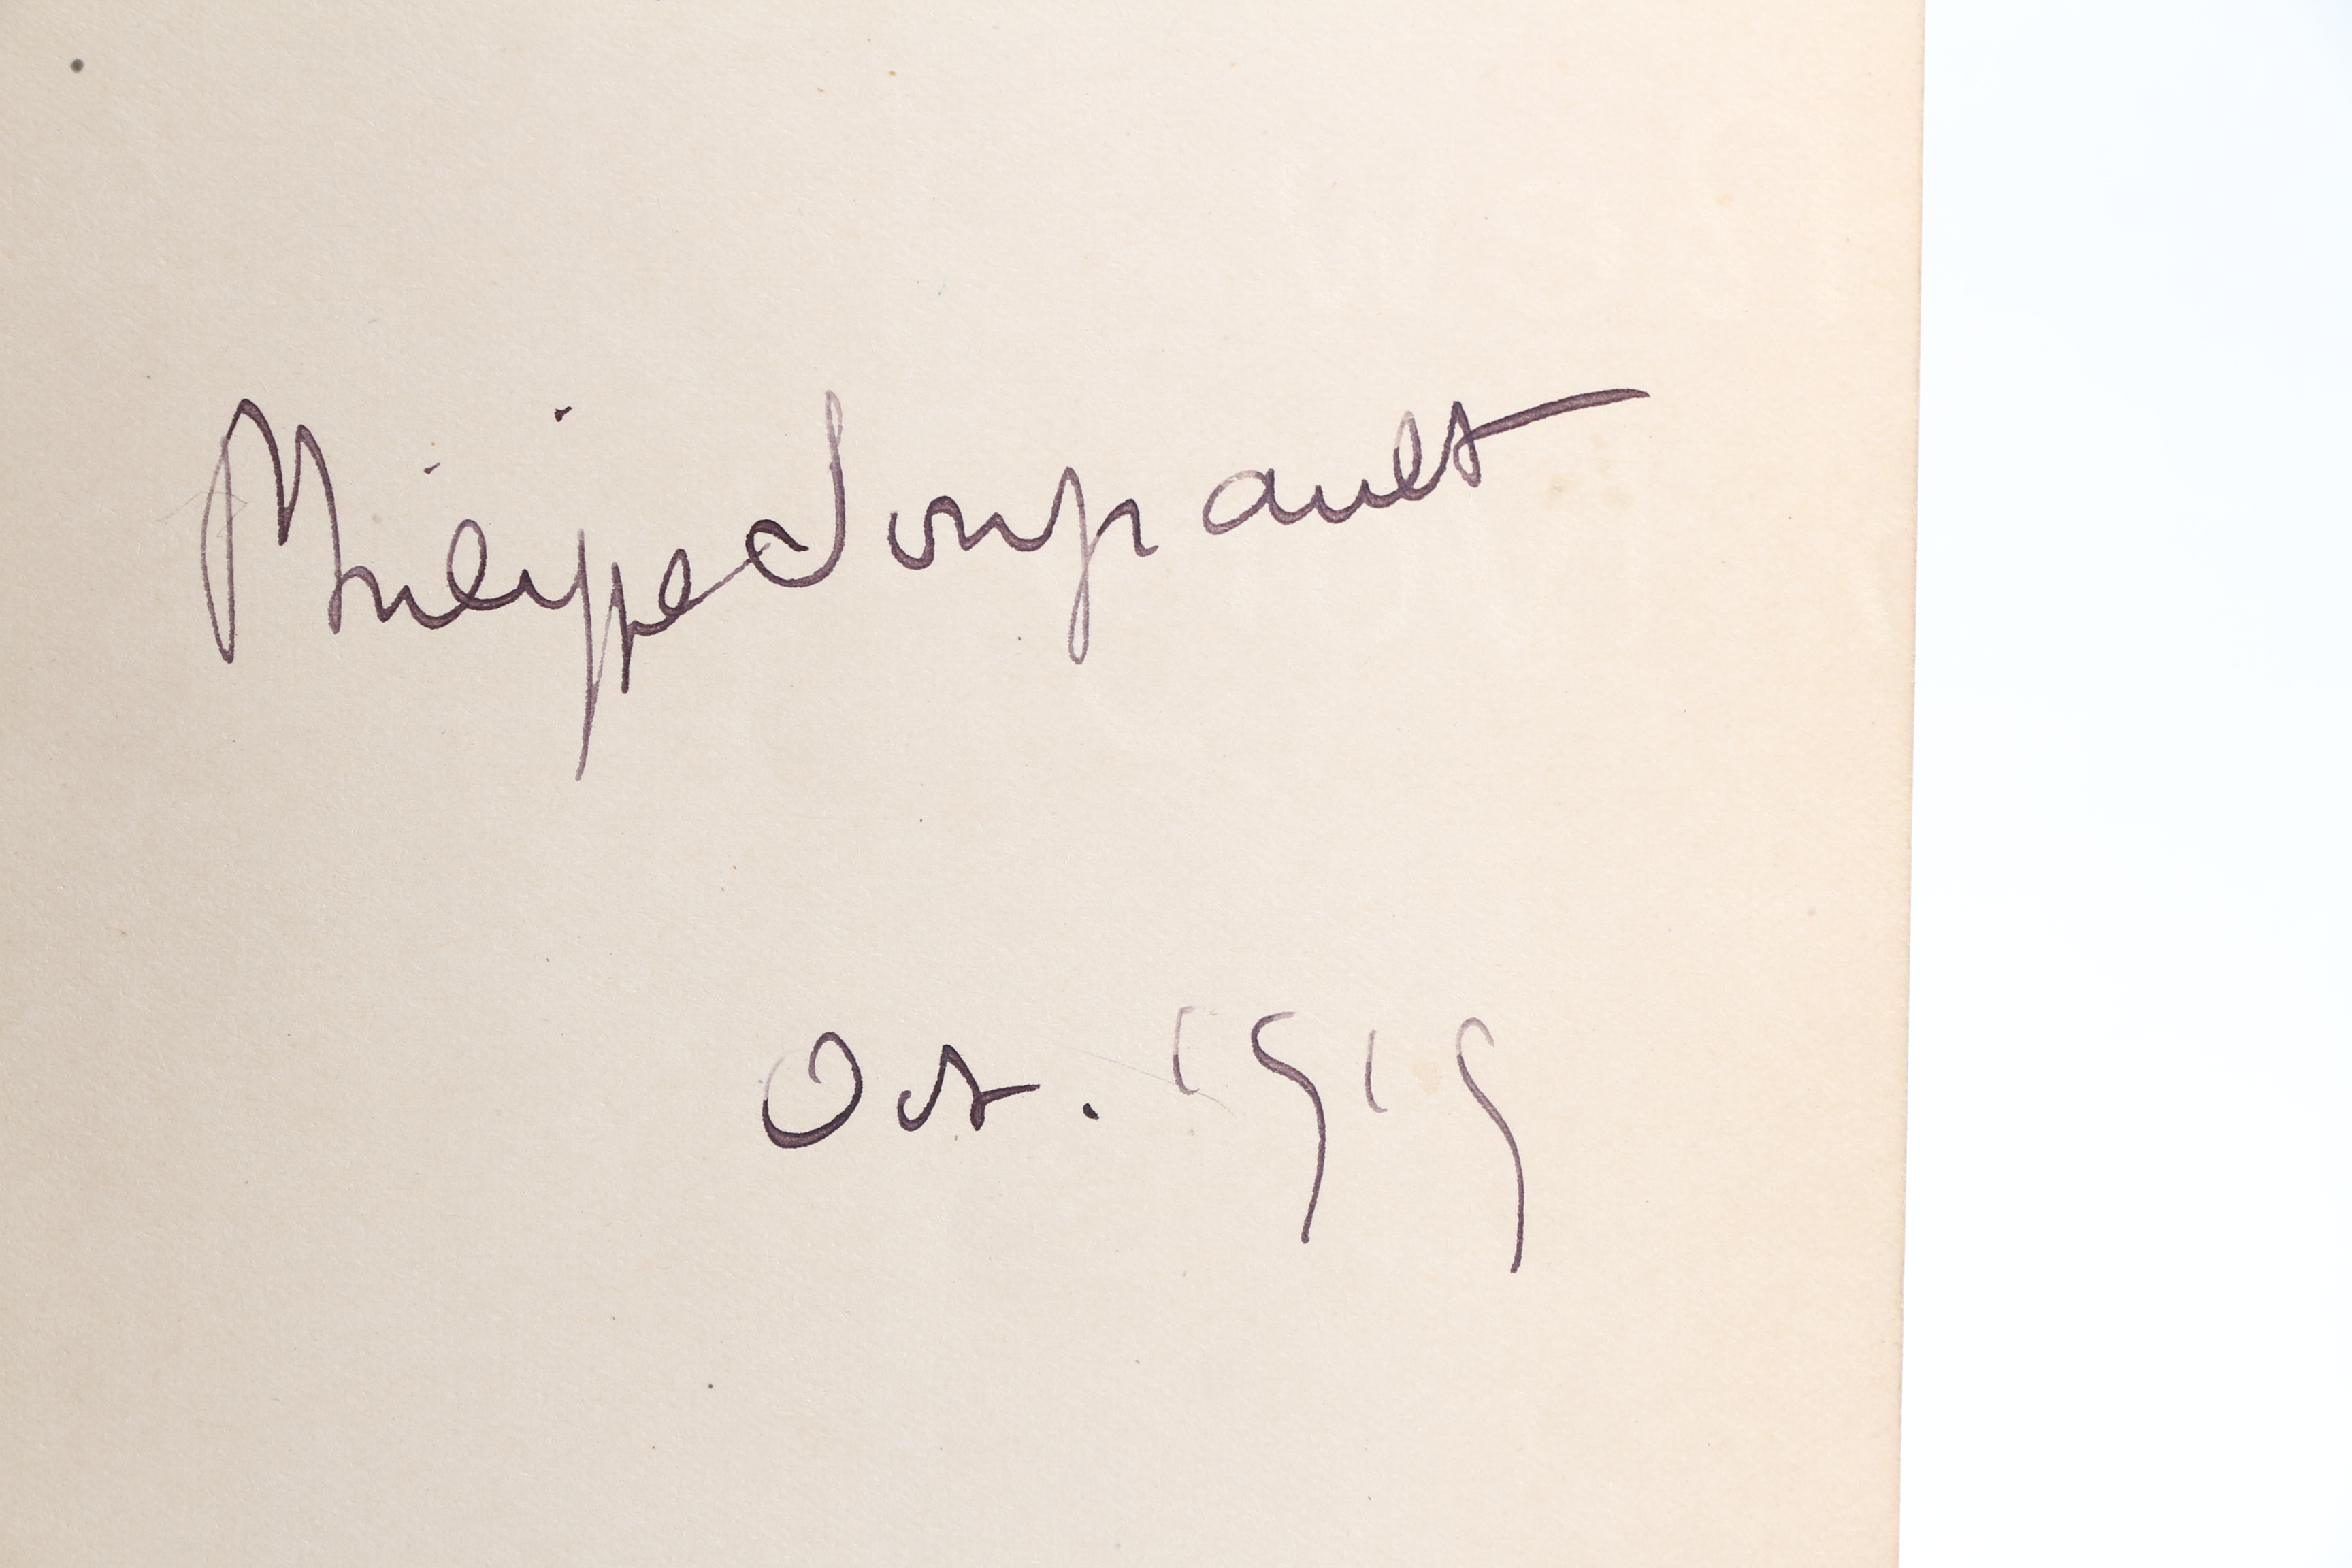 Philippe Soupault
Oct. 1919